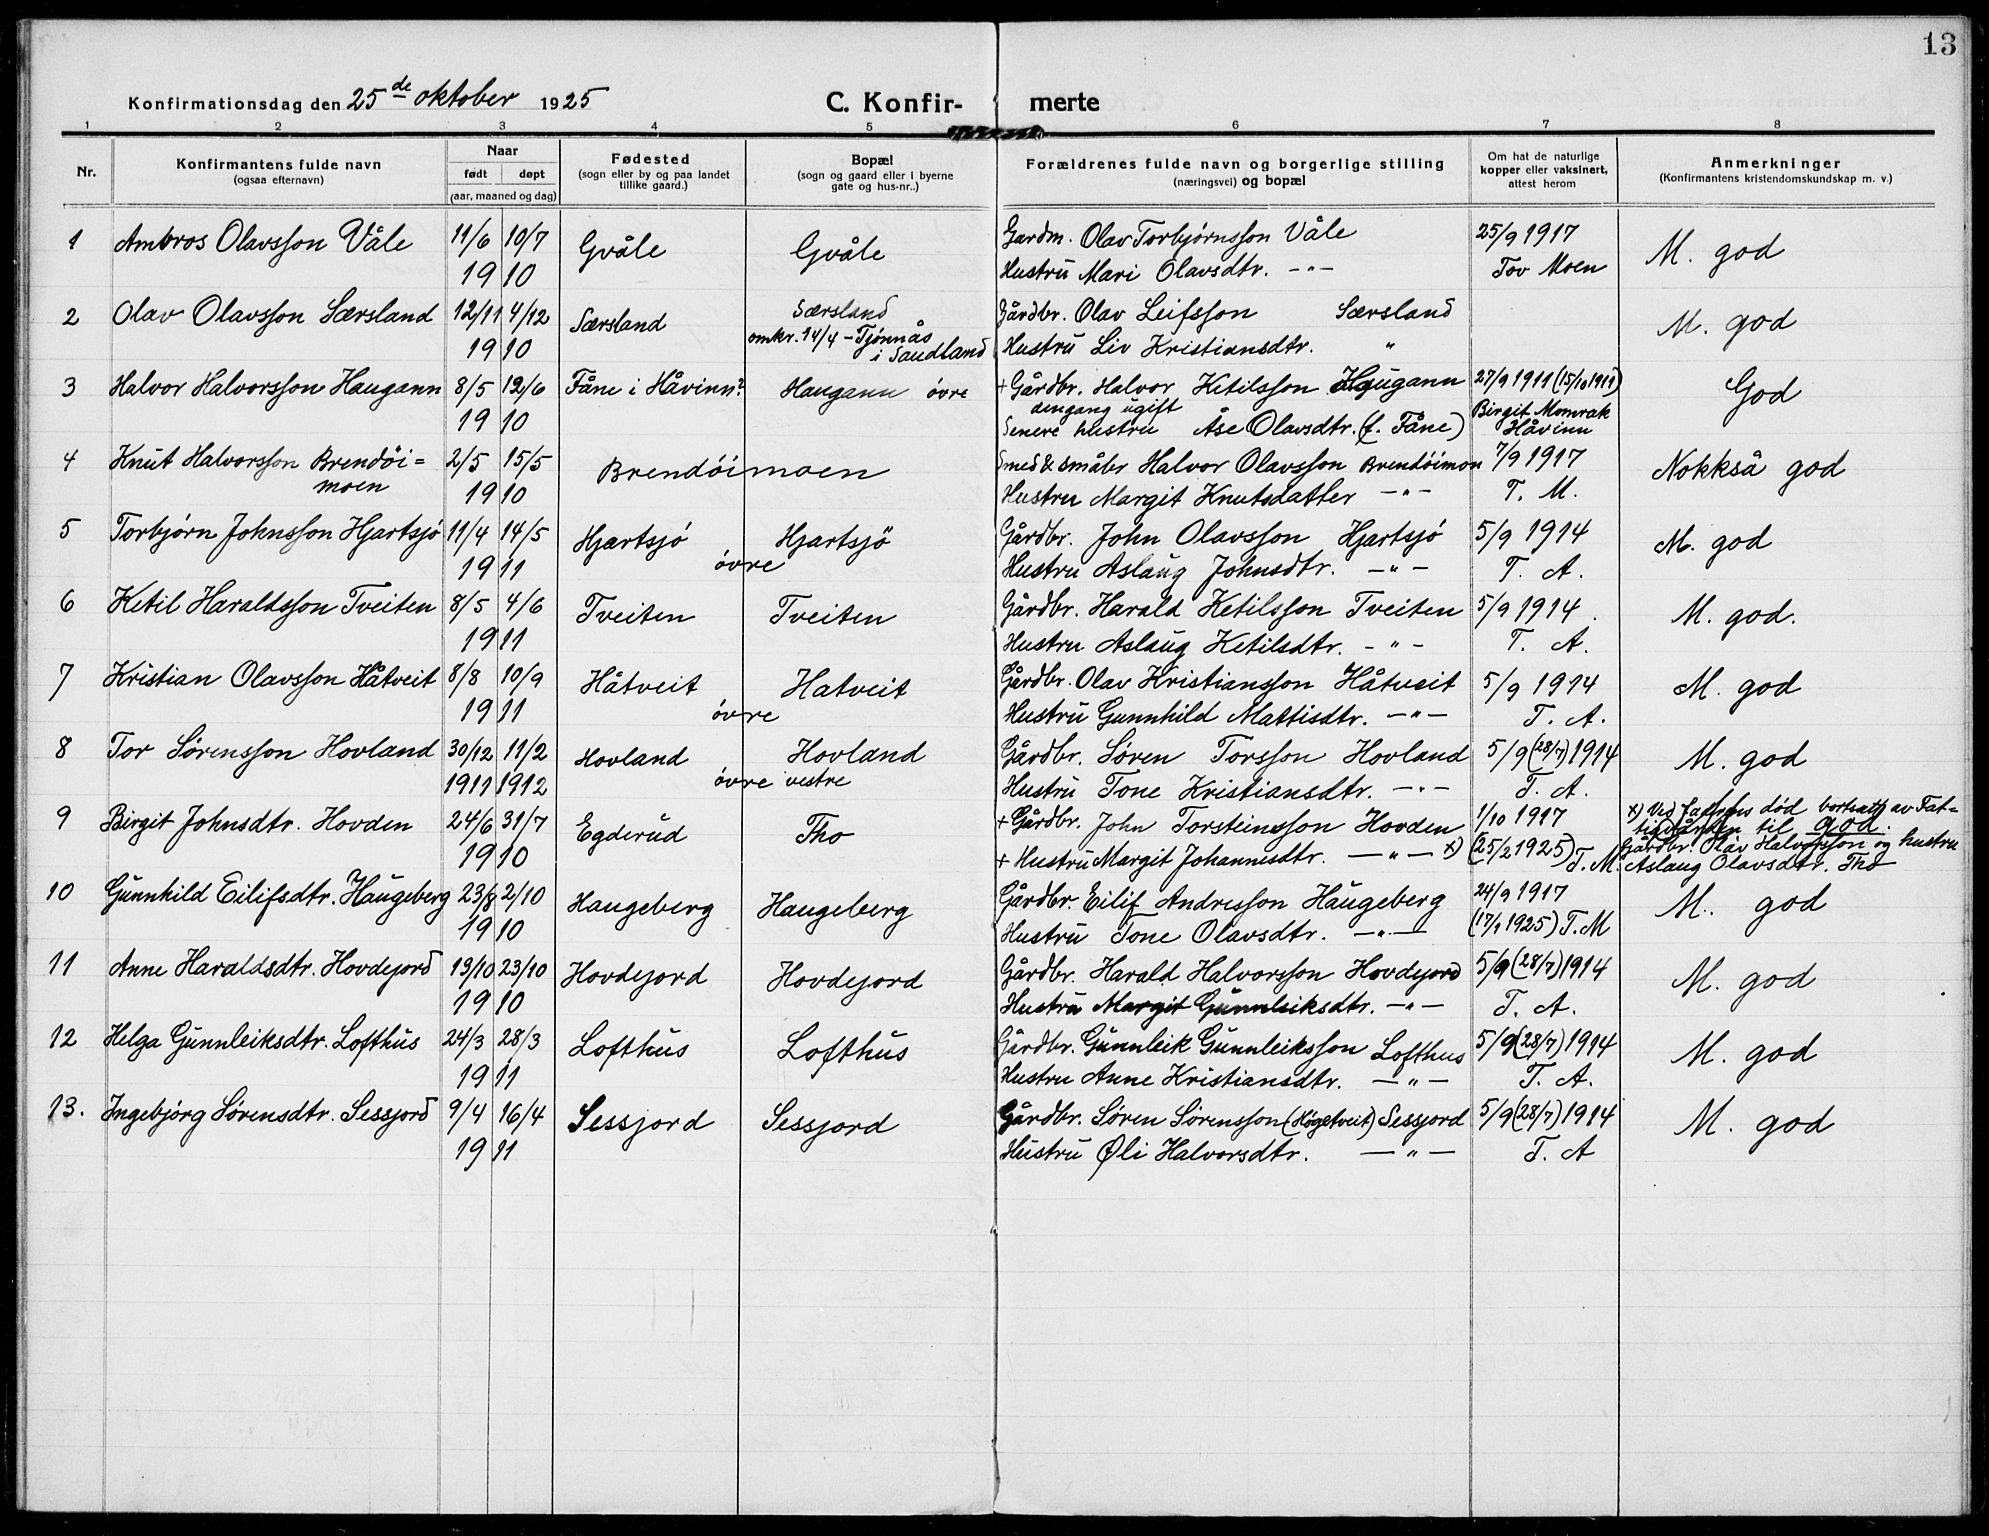 13
Konfirmationsdag den 25de oktober 1925 C. Konfir- merte
1 2 3 4 5 6 7 8
Nr. Konfirmantens fulde navn (ogsaa efternavn) Naar født døpt (aar, maaned og dag) Fødested (sogn eller by og paa landet tillike gaard.) Bopæl (sogn og gaard eller i byerne gate og hus-nr..) Forældrenes fulde navn og borgerlige stilling (næringsvei) og bopæl Om hat de naturlige kopper eller vaksinert, attest herom Anmerkninger (Konfirmantens kristendomskundskap m. v.)
1 Ambros Olavsson Våle 11/6 10/7 Gvåle Gvåle Gardm. Olav Torbjørnsson Våle 25/9 1917 M. god
1910 Hustru Mari Olavsdtr. -"- Tov Moen
2 Olav Olavsson Særsland 12/11 4/12 Særsland Særsland Gårdbr. Olav Leifsson Særsland M. god
1910 omkr. 14/4 - Tjønnås i Saudland Hustru Liv Kristiansdtr. "
3 Halvor Halvorsson Haugann 8/5 12/6 Fåne i Håvinn? Haugann øvre + Gårdbr. Halvor Ketilsson Haugann 27/9 1911 (15/10 1911) God
1910 dengang ugift Birgit Momrak
Senere hustru Åse Olavsdtr. (f. Fåne) Håvinn
4 Knut Halvorsson Brendöi= 2/5 15/5 Brendöimoen Smed & småbr Halvor Olavsson Brendöimon 7/9 1917 Nokkså god
moen 1910 Hustru Margit Knutsdatter -"- T. M.
5 Torbjørn Johnsson Hjartsjö 11/4 14/5 Hjartsjö Hjartsjö Gårdbr. John Olavsson Hjartsjö 5/9 1914 M. god
1911 övre Hustru Aslaug Johnsdtr. -"- T. A.
6 Ketil Haraldsson Tveiten 8/5 4/6 Tveiten Tveiten Gårdbr. Harald Ketilsson Tveiten 5/9 1914. M. god.
1911 Hustru Aslaug Ketilsdtr. -"- T. A.
7 Kristian Olavsson Håtveit 8/8 10/9 Håtveit Hatveit Gårdbr. Olav Kristiansson Håtveit 5/9 1914 M. god
1911 övre Hustru Gunnhild Mattisdtr. -"- T. A.
8 Tor Sørensson Hovland 30/12 11/2 Hovland Hovland Gårdbr. Søren Torsson Hovland 5/9 (28/7) 1914 M. god
1911 1912 övre vestre Hustru Tone Kristiansdtr. -"- T. A.
9 Birgit Johnsdtr. Hovden 24/6 31/7 Egderud Tho + Gårdbr. John Torsteinsson Hovden 1/10 1917 x) Ved faderens død bortsatt av Fat-
tigvården til god.
1910 + Hustru Margit Johannesdtr. -"- x) (25/2 1925) T. M. Gårdbr. Olav Halvorsson og hustru
Aslaug Olavsdtr. Tho
10 Gunnhild Eilifsdtr. Haugeberg 23/8 2/10 Haugeberg Haugeberg Gårdbr. Eilif Andresson Haugeberg 24/9 1917 M. god
1910 Hustru Tone Olavsdtr. -"- (17/9 1925) T. M
11 Anne Haraldsdtr. Hovdejord 13/10 23/10 Hovdejord Hovdejord Gårdbr. Harald Halvorsson Hovdejord 5/9 (28/7) 1914 M. god
1910 Hustru Margit Gunnleiksdtr. -"- T. A.
12 Helga Gunnleiksdtr. Lofthus 24/3 28/3 Lofthus Lofthus Gårdbr. Gunnleik Gunnleiksson Lofthus 5/9 (28/7) 1914 M. god
1911 Hustru Anne Kristiansdtr. -"- T. A.
13. Ingebjørg Sørensdtr. Sessjord 9/4 16/4 Sessjord Sessjord Gårdbr. Søren Sørensson (Högetveit) Sessjord 5/9 (28/7) 1914 M. god
1911 Hustru Øli Halvorsdtr. -"- T. A